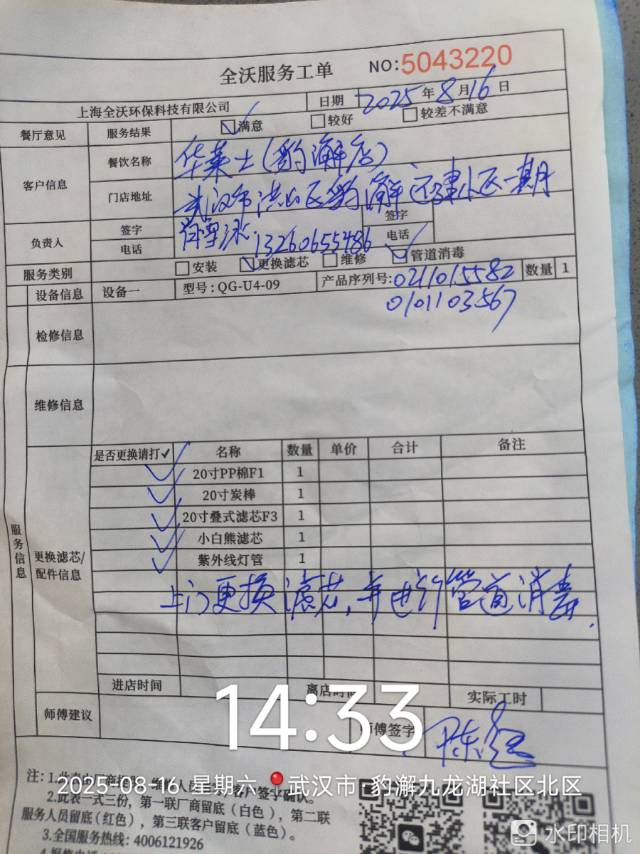 全沃服务工单 NO:5043220
上海全沃环保科技有限公司 日期 2025年8月16日
餐厅意见 服务结果 ☑满意 □较好 □较差不满意
客户信息 餐饮名称 华莱士(豹澥店)
门店地址 武汉市洪山区豹澥还建小区一期
负责人 签字 签字
电话 13260655486 电话
服务类别 □安装 ☑更换滤芯 □维修 ☑管道消毒
设备信息 设备一 型号:QG-U4-09 产品序列号:0211015582 数量 1
0101103567
检修信息
维修信息
服务信息
更换滤芯/配件信息
是否更换请打✓ 名称 数量 单价 合计 备注
✓ 20寸PP棉F1 1
✓ 20寸炭棒 1
✓ 20寸叠式滤芯F3 1
✓ 小白熊滤芯 1
✓ 紫外线灯管 1
上门更换滤芯,并进行管道消毒.
进店时间 离店时间 实际工时
师傅建议 师傅签字
14:33
2025-08-16 星期六 武汉市·豹澥九龙湖社区北区
2.此表一式三份,第一联厂商留底(白色),第二联
服务人员留底(红色),第三联客户留底(蓝色)。
3.全国服务热线:4006121926
水印相机